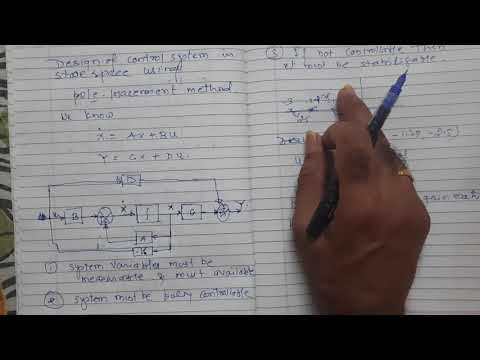 Design of control system in
state space using
pole-placement method
We know
ẋ = Ax + BU
Y = Cx + DU
D
B
ẋ
∫
x
C
Y
A
-K
① System variables must be
measurable & must available
② System must be fully controllable
③ If not controllable then
it must be stabilizable.
-3
gain